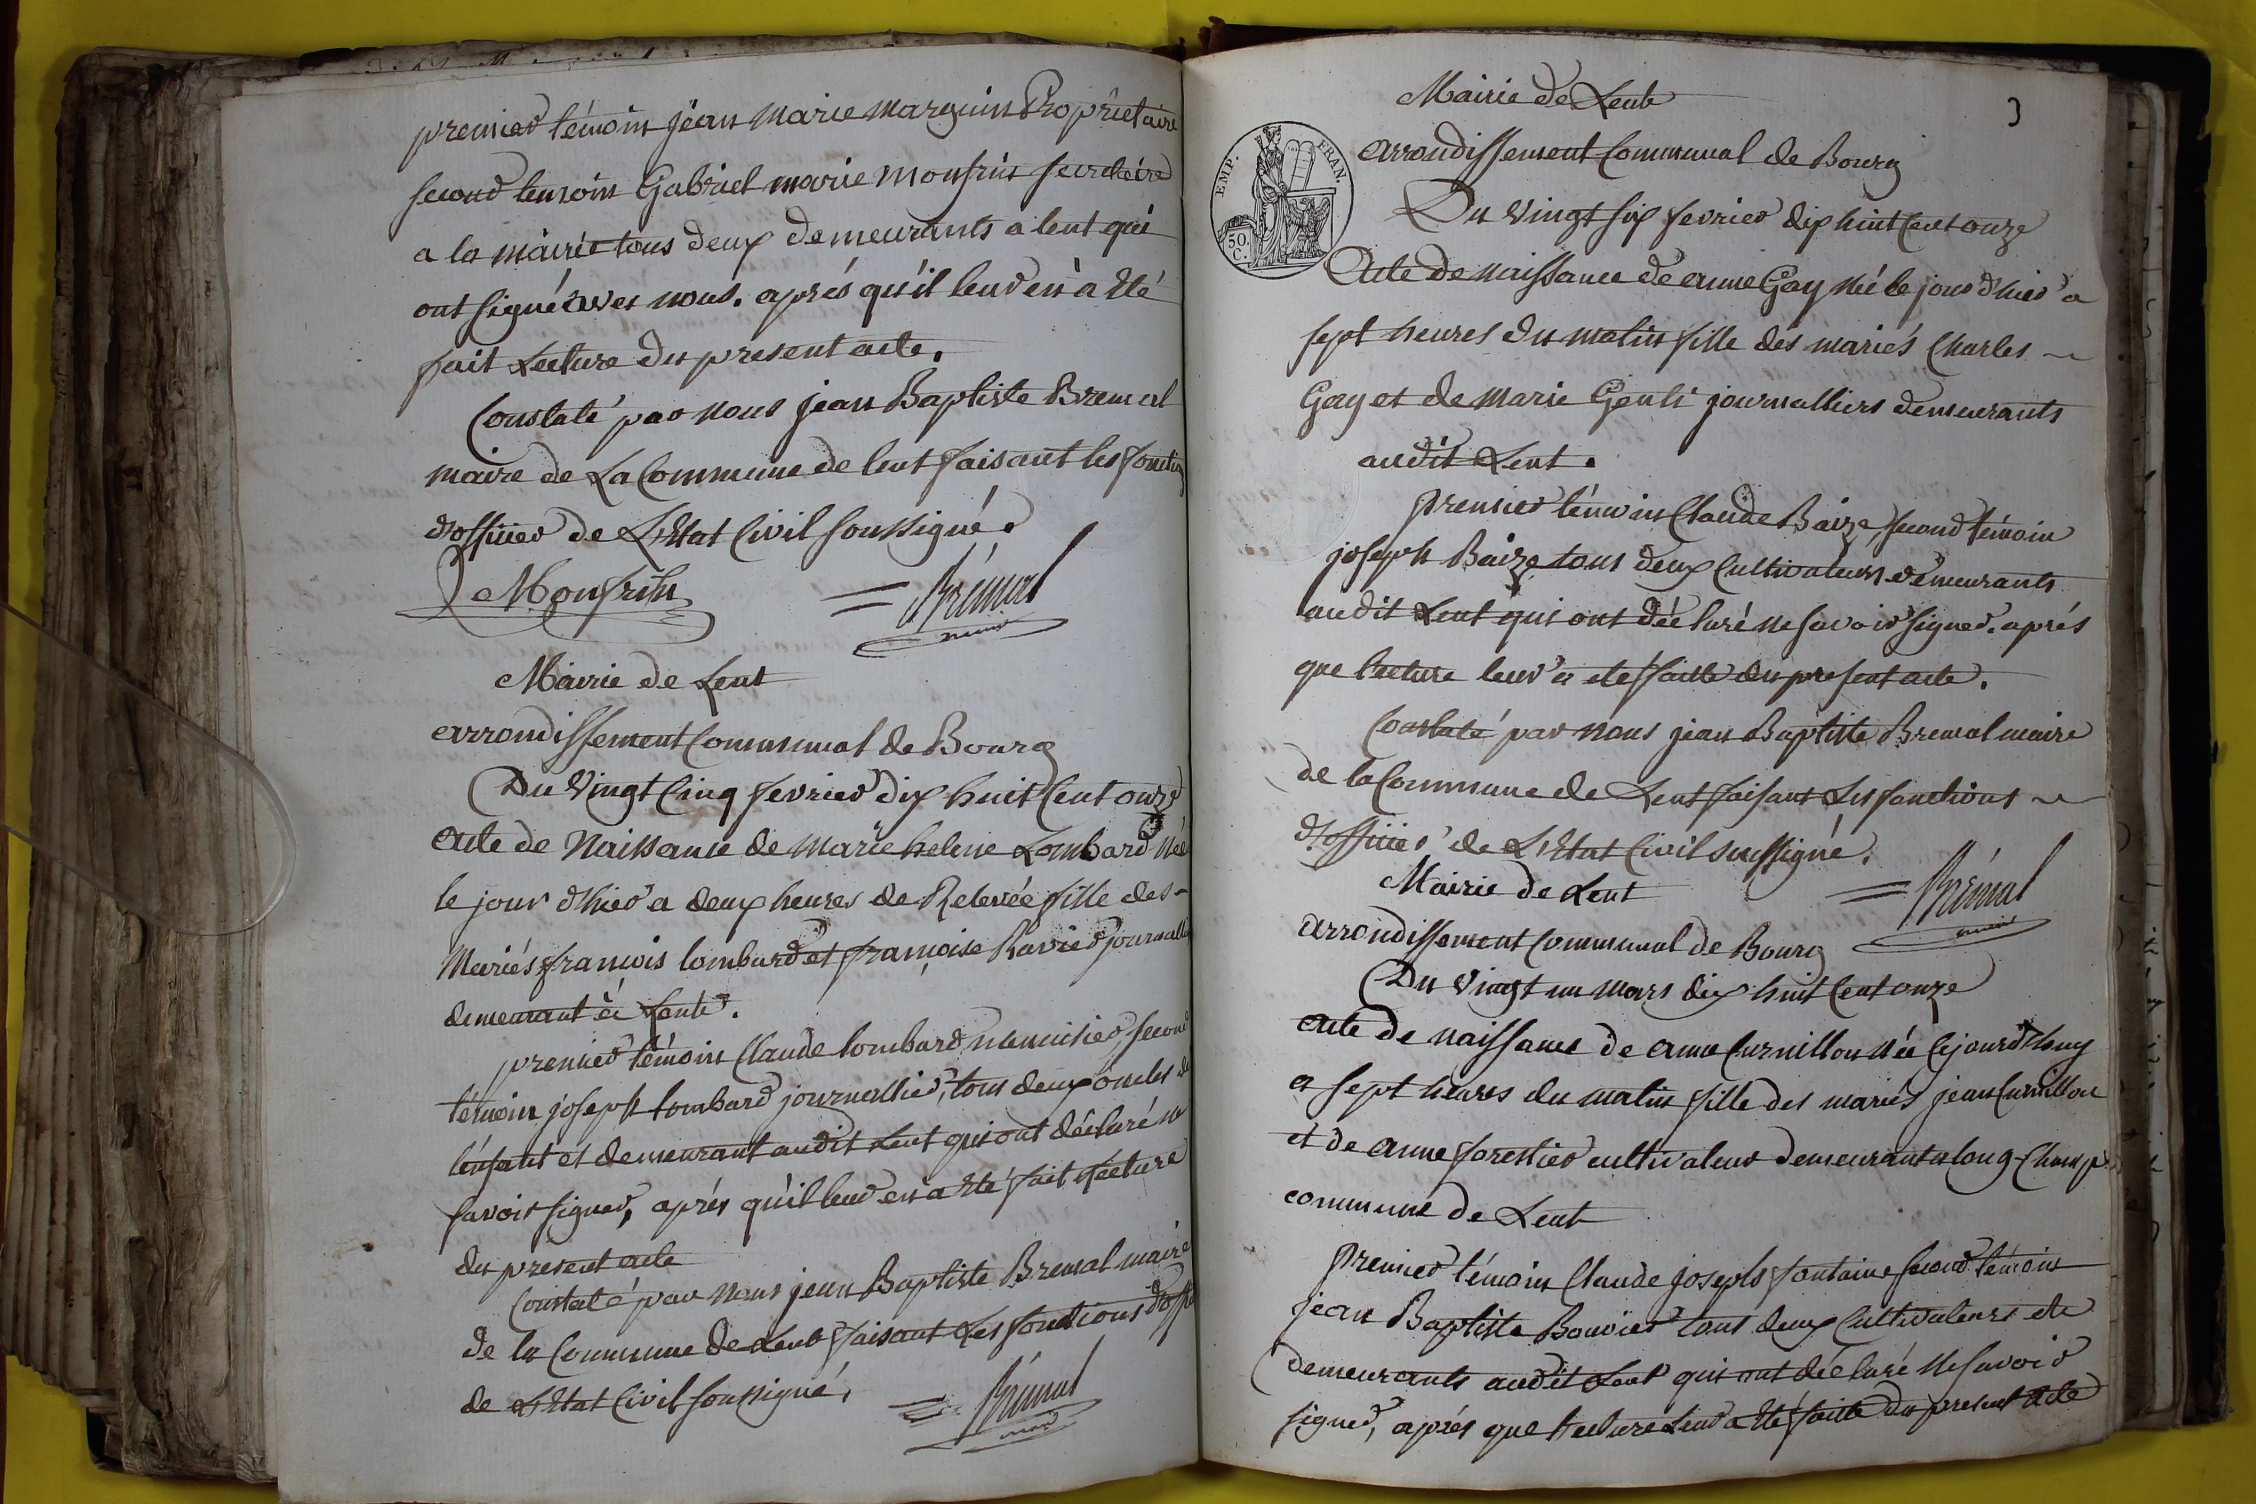 premier témoin jean marie marguin Proprietaire
second temoin Gabriel marie monfrin secretaire
a la mairie tous deux demeurants a lent qui
ont signé avec nous. aprés qu'il leur en a eté
fait Lecture du present acte.
Constaté par nous jean Baptiste Bremal
maire de La Commune de lent faisant les fonctions
d'officier de L'Etat Civil soussigné.
Monfrin Brémal
maire
Mairie de Lent
arrondissement Communal de Bourg
Du Vingt Cinq fevrier dix huit Cent onze
acte de Naissance de marie helene Lombard Née
le jour d'hier a deux heures de Relevée fille des
Mariés francois lombard et françoise Ravier journalliers
demeurant à Lent.
premier témoin Claude lombard menuisier, second
témoin joseph lombard journallier, tous deux oncles de
l'enfant et demeurant audit Lent qui ont déclaré ne
savoir signer, aprés qu'il leur en a eté fait Lecture
du present acte
Constaté par Nous jean Baptiste Bremal maire
de la Commune de Lent faisant Les fonctions d'offic
de L'Etat Civil soussigné.
Brémal
maire
3
Mairie de Lent
EMP. FRAN.
50. C.
arrondissement Communal de Bourg
Du Vingt six fevrier dix huit Cent onze
Acte de naissance de anne Gay Né le jour d'hier a
sept heures du matin fille des mariés Charles
Gay et de marie Genti journalliers demeurants
audit Lent.
premier témoin Claude Baize, second témoin
joseph Baize tous deux Cultivateurs demeurants
audit Lent qui ont déclaré ne savoir signer. aprés
que lecture leur a eté faitte du present acte.
Constaté par nous jean Baptiste Bremal maire
de la Commune de Lent faisant Les fonctions
d'officier de L'Etat Civil soussigné.
Brémal
maire
Mairie de Lent
arrondissement Communal de Bourg
Du Vingt un mars dix huit Cent onze
acte de naissance de anne Curnillon née Cejourd'huy
a sept heures du matin fille des mariés jean Curnillon
et de anne forestier cultivateur demeurant a long-Champ
commune de Lent
premier témoin Claude joseph fontaine second témoin
jean Baptiste Bouvier tous deux Cultivateurs et
demeurants audit Lent qui ont déclaré Ne savoir
signer, aprés que lecture Leur a eté faitte du present acte